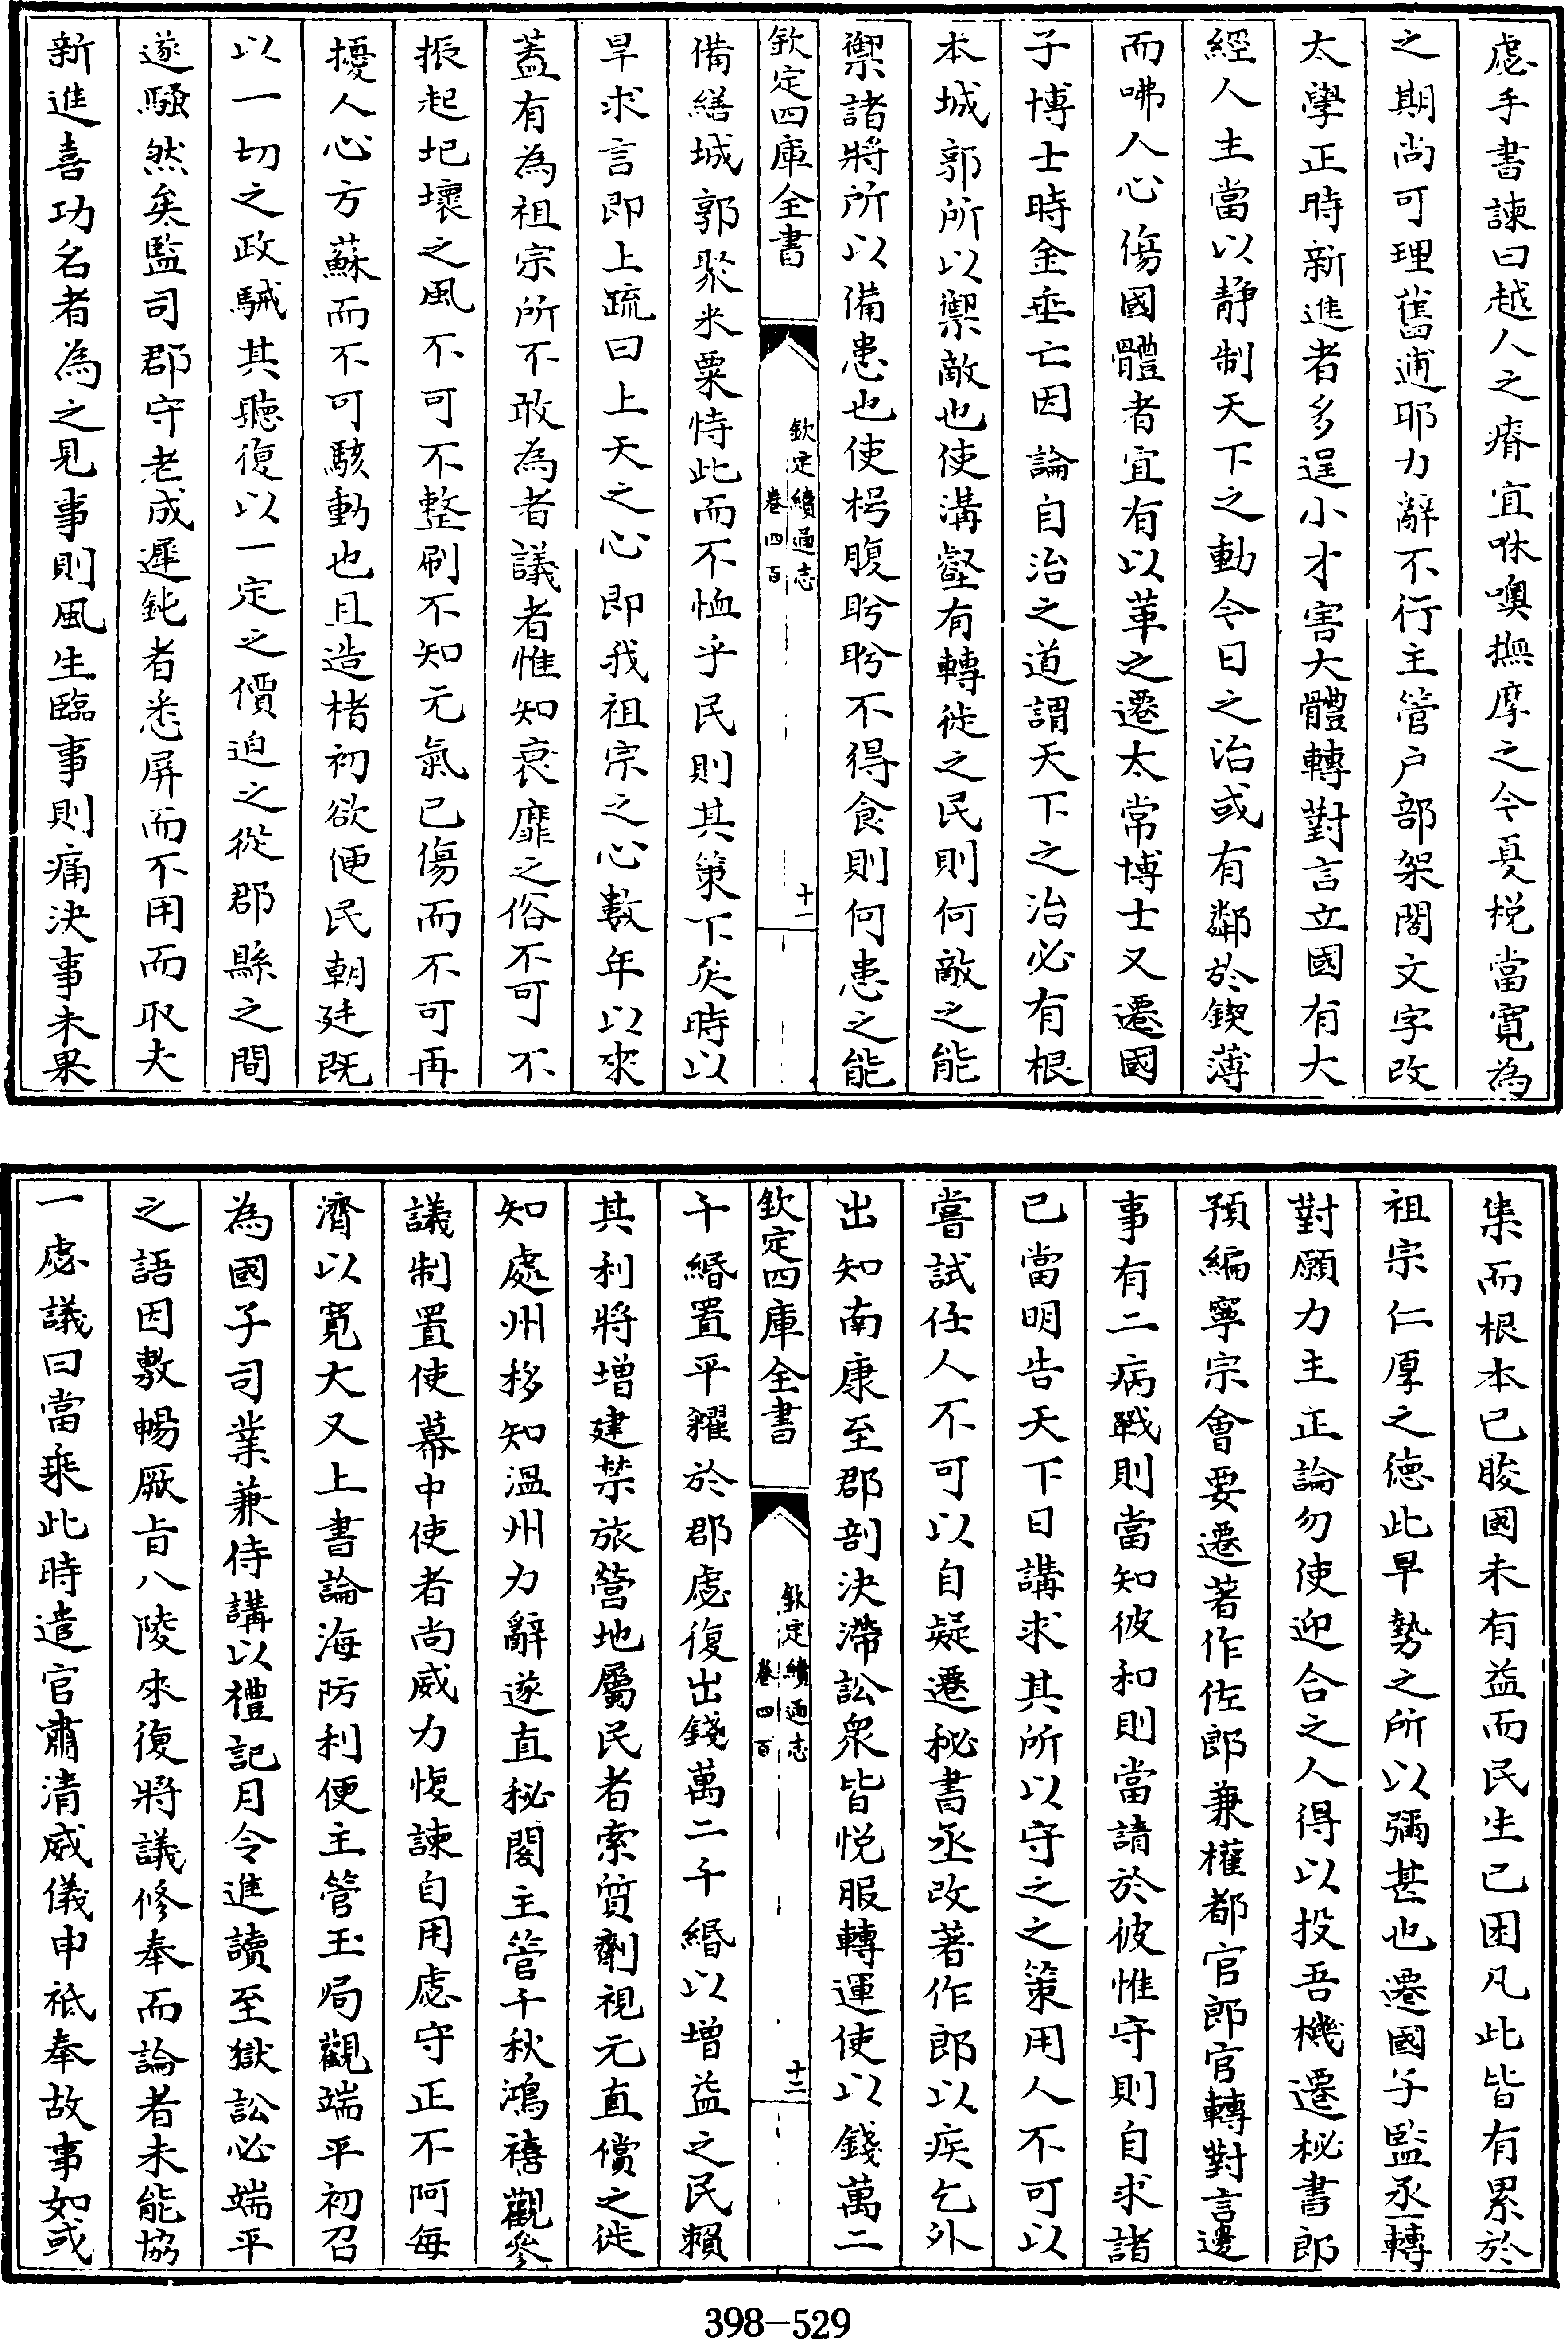 慮手書諫曰越人之瘠宜咻噢撫摩之今夏税當寛為
之期尚可理舊逋耶力辭不行主管户部架閣文字改
太學正時新進者多逞小才害大體轉對言立國有大
經人主當以静制天下之動今日之治或有鄰於鍥薄
而咈人心傷國體者宜有以革之遷太常博士又遷國
子博士時金垂亡因論自治之道謂天下之治必有根
本城郭所以禦敵也使溝壑有轉徙之民則何敵之能
禦諸將所以備患也使枵腹盻盻不得食則何患之能
欽定四庫全書
欽定續通志
卷四百
十一
備繕城郭聚米粟恃此而不恤乎民則其策下矣時以
旱求言即上疏曰上天之心即我祖宗之心數年以來
蓋有為祖宗所不敢為者議者惟知衰靡之俗不可不
振起圮壞之風不可不整刷不知元氣已傷而不可再
擾人心方蘇而不可駭動也且造楮初欲便民朝廷既
以一切之政駴其聽復以一定之價迫之從郡縣之間
遂騷然矣監司郡守老成遲鈍者悉屏而不用而取夫
新進喜功名者為之見事則風生臨事則痛決事未果
集而根本已朘國未有益而民生已困凡此皆有累於
祖宗仁厚之德此旱勢之所以彌甚也遷國子監丞轉
對願力主正論勿使迎合之人得以投吾機遷秘書郎
預編寧宗會要遷著作佐郎兼權都官郎官轉對言邊
事有二病戰則當知彼和則當請於彼惟守則自求諸
已當明告天下日講求其所以守之之策用人不可以
嘗試任人不可以自疑遷秘書丞改著作郎以疾乞外
出知南康至郡剖決滯訟衆皆悦服轉運使以錢萬二
欽定四庫全書
欽定續通志
卷四百
十二
千緡置平糴於郡處復出錢萬二千緡以增益之民賴
其利將增建禁旅營地屬民者索質劑視元直償之徙
知處州移知温州力辭遂直秘閣主管千秋鴻禧觀參
議制置使幕中使者尚威力愎諫自用慮守正不阿每
濟以寛大又上書論海防利便主管玉局觀端平初召
為國子司業兼侍講以禮記月令進讀至獄訟必端平
之語因敷暢厥㫖八陵來復將議修奉而論者未能協
一慮議曰當乘此時遣官肅清威儀申祗奉故事如或
398—529